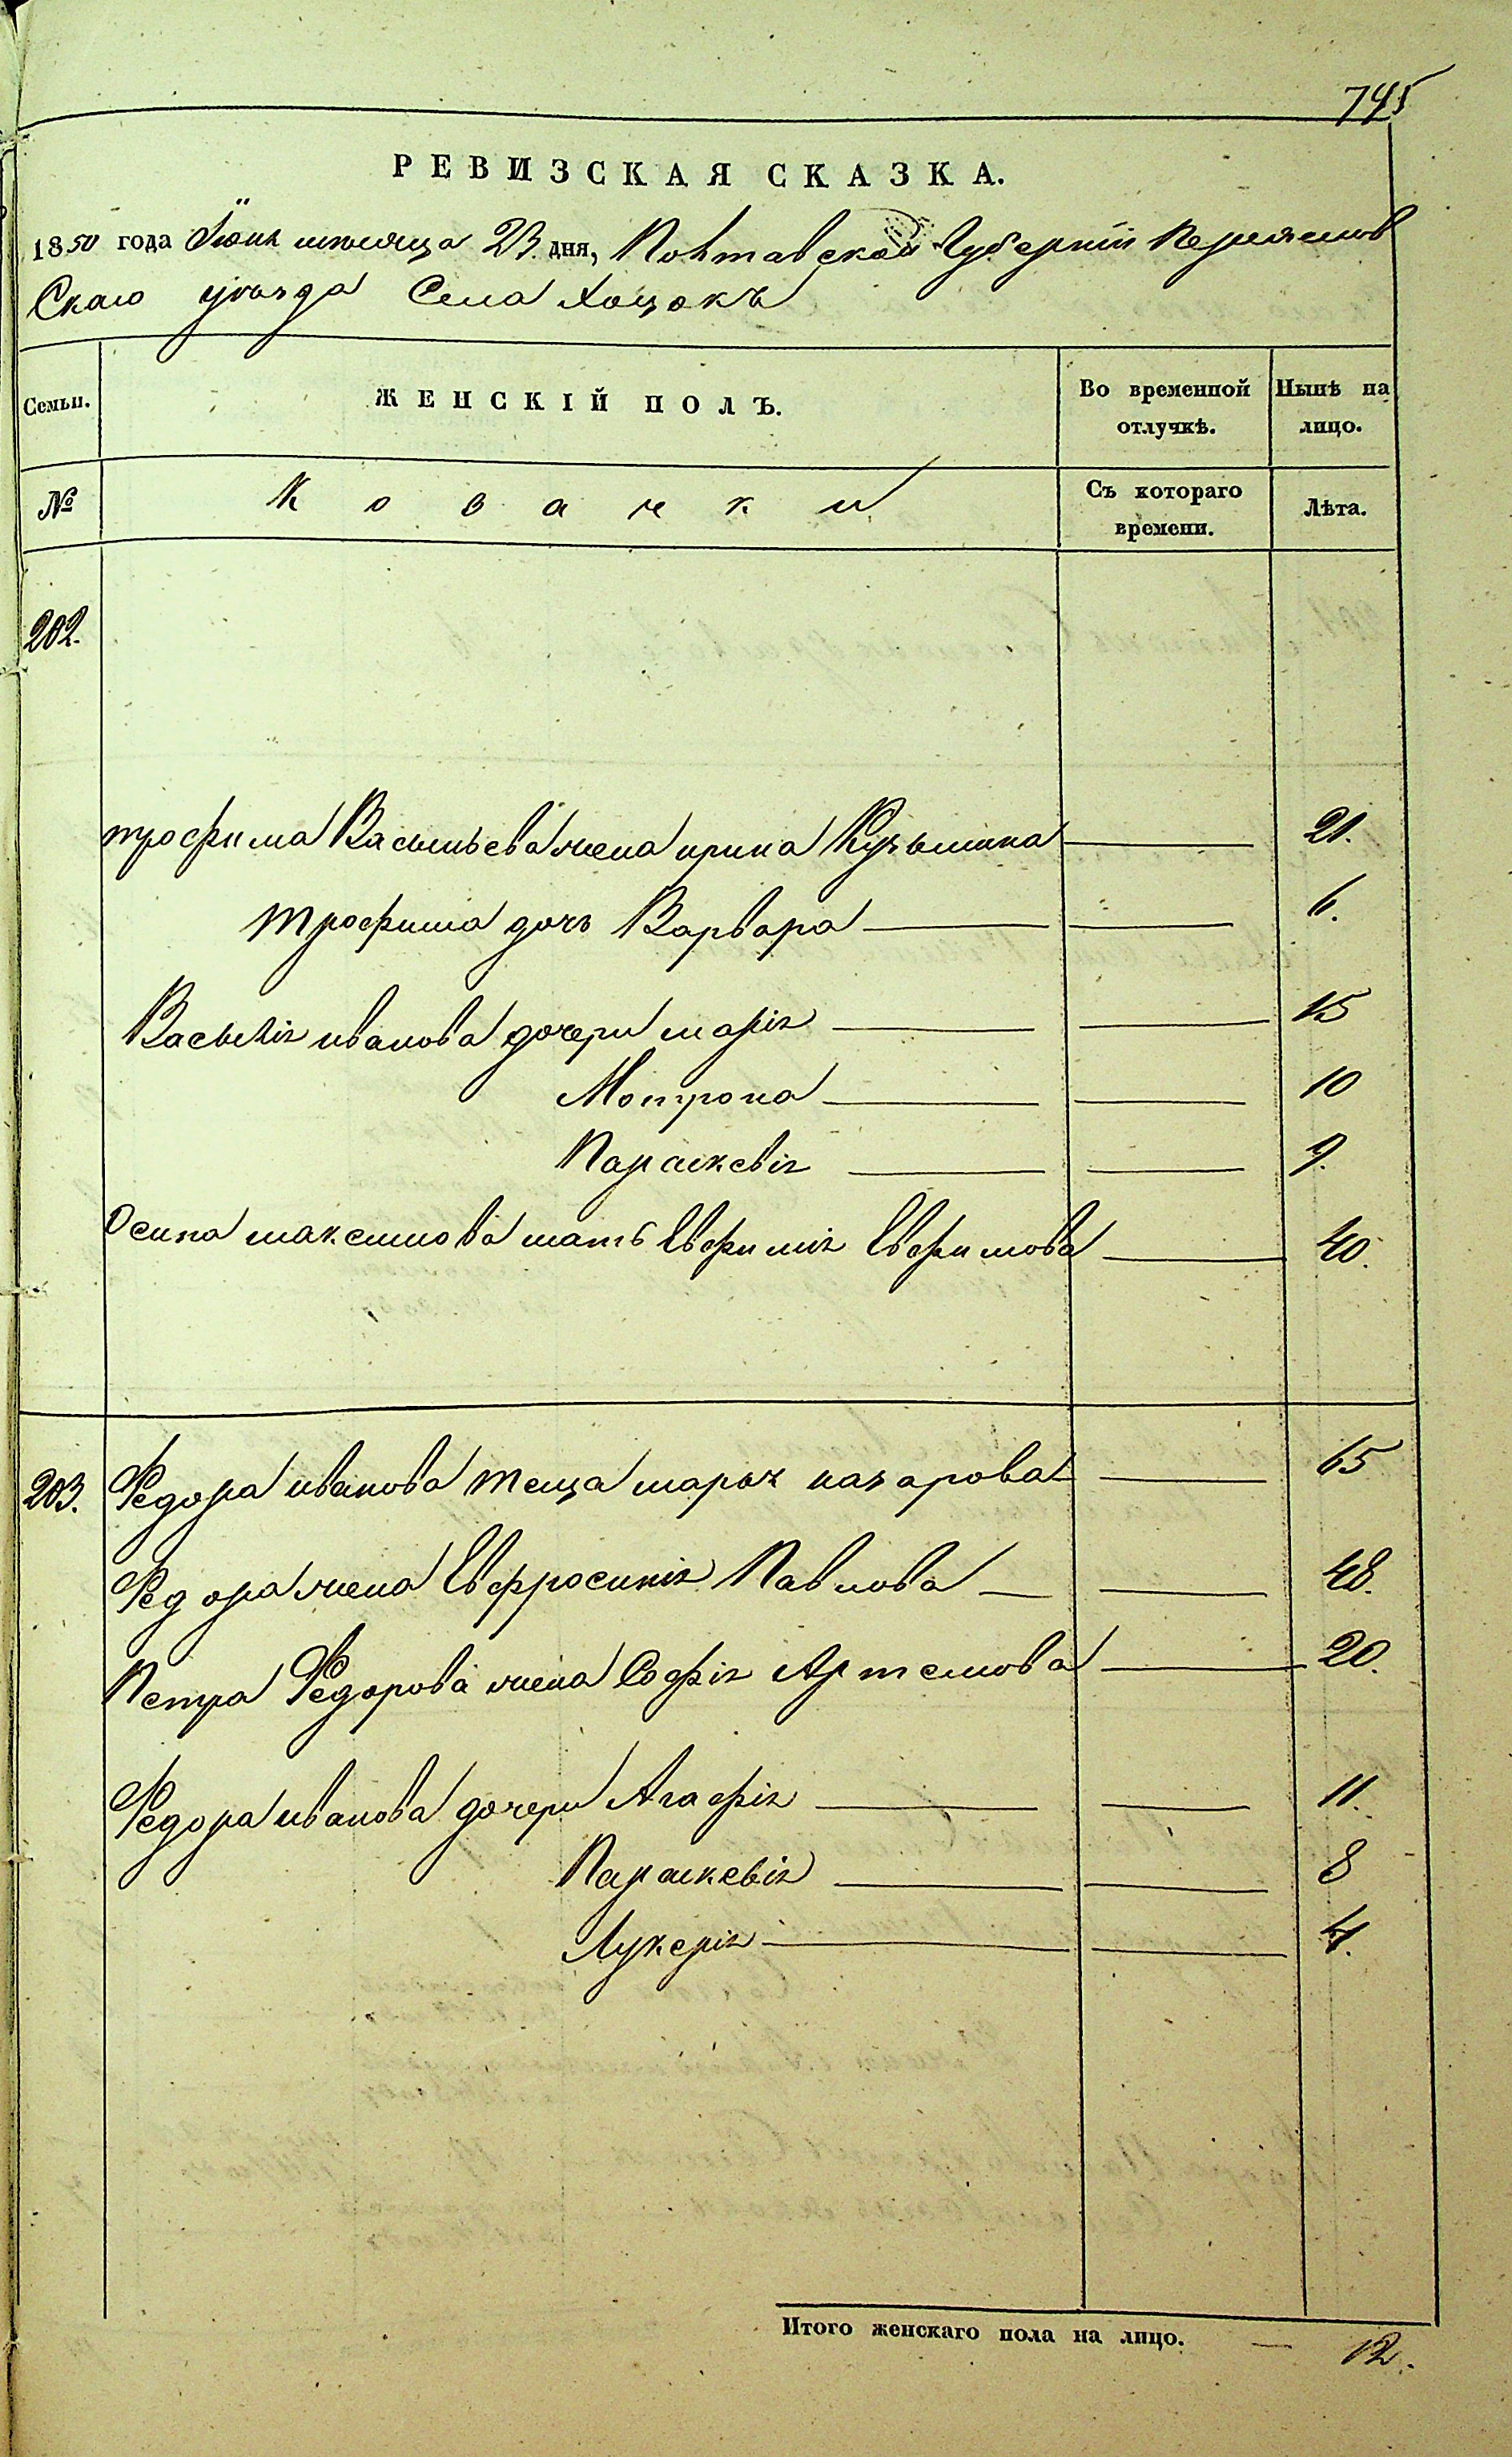 745
РЕВИЗСКАЯ СКАЗКА.
1850 года Іюня месяца 23. дня, Полтавской Губерніи Переяслов
Скаго уѣзда Села Хоцокъ
Семьи. ЖЕНСКІЙ ПОЛЪ. Во временной отлучкѣ. Нынѣ на лицо.
№ Козачки Съ котораго времени. Лѣта.
202.
трофима Васильева жена ирина Кузьмина 21.
трофима дочь Варвара 6.
Василія иванова дочери марія 15
Мотрона 10
Параскевія 9.
Осипа максимова мать Евфимія Евфимова 40.
203. Федора иванова теща марья назарова 65
Федора жена Евфросинія Павлова 48.
Петра Федорова жена Софія Артемова 20.
Федора иванова дочери Агафія 11.
Параскевія 8
Лукерія 4.
Итого женскаго пола на лицо. — 12.